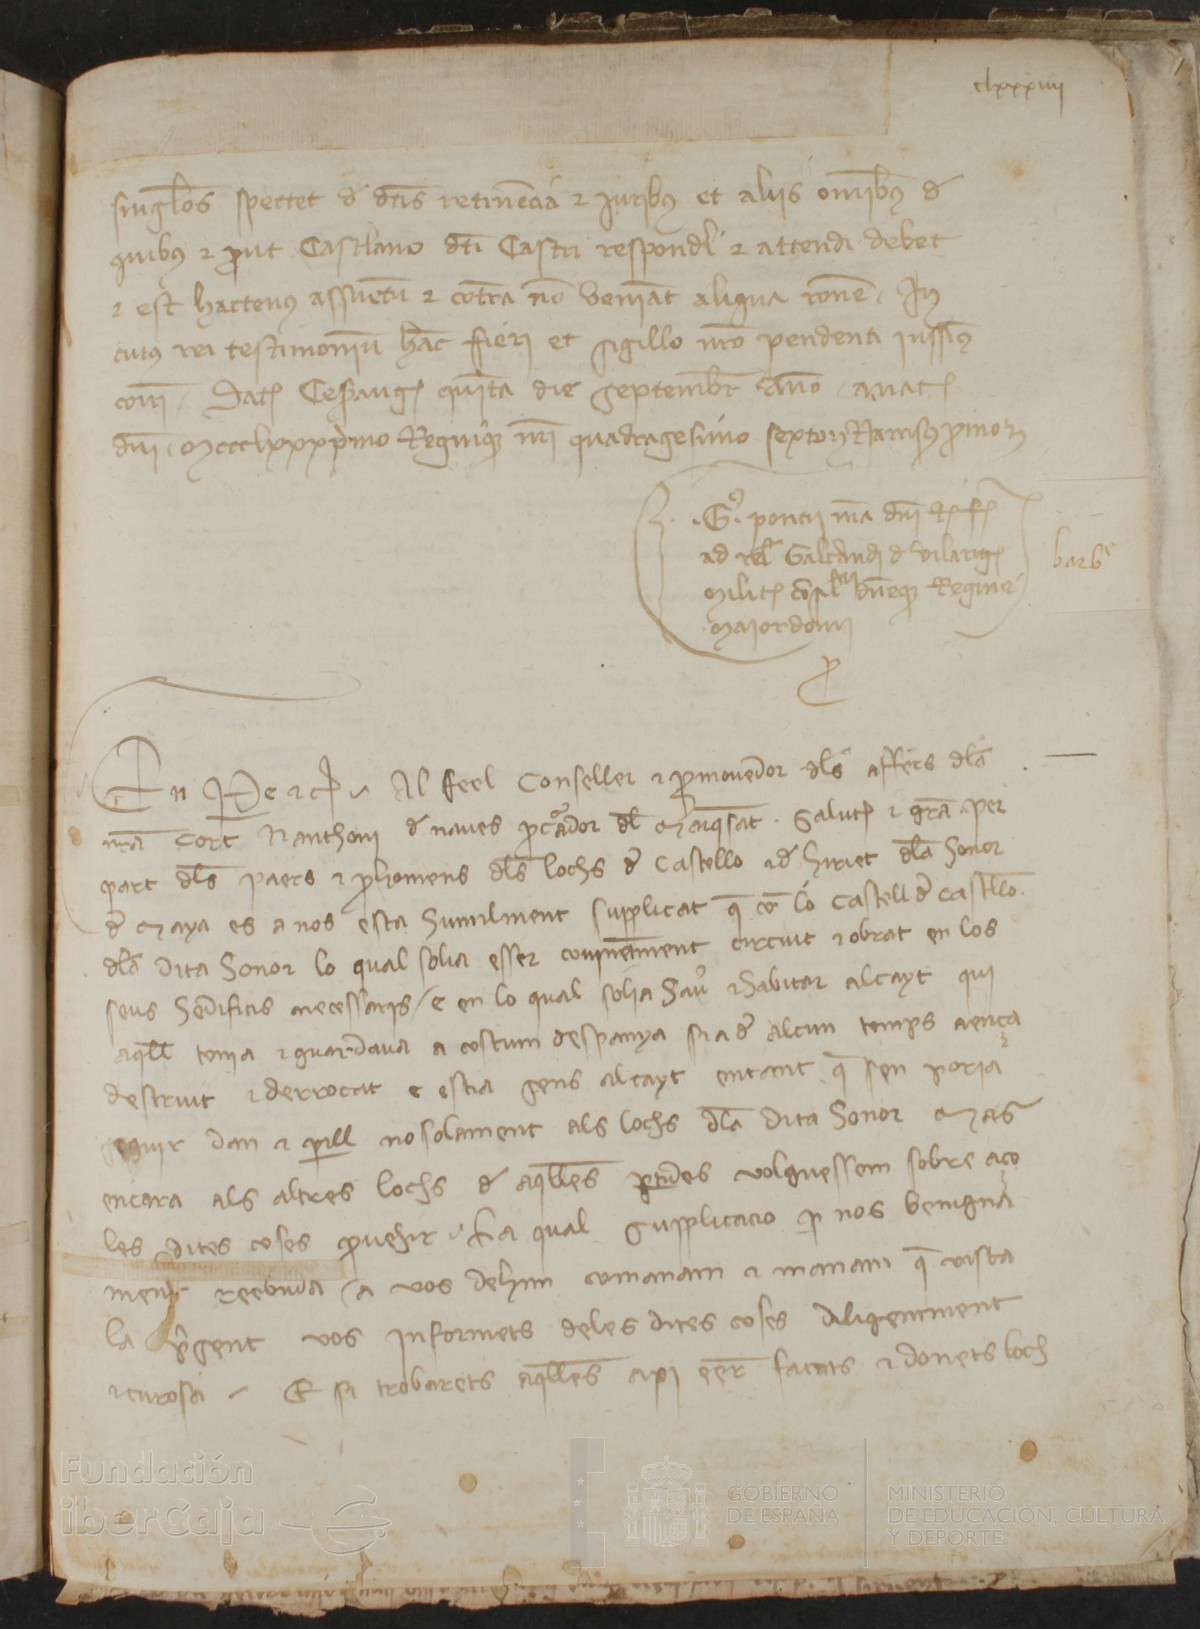 clxxxiiii
singlos spectet de dcis retinencia et juribus et aliis omnibus de
quibus et prout Castlano dci Castri responderi et attendi debet
et est hactenus assuetum et contra non veniat aliqua ratione. In
cuius rei testimonium hanc fieri et sigillo nro pendenti iussimus
Dat Cesaraug quinta die septembr Anno a nat
dni mccclxxx primo Regnique nri quadragesimo sexto Narcisus promotor
G. poncii mandato dni Reg f
ad rel Galcerandi de vilarig
militis consil dneque Regine
maiordomi
barbe
P
En Pe etc Al feel Conseller et promovedor dels affers dela
nra Cort Nanthoni de naves procurador del marquesat Salut et gra per
part dels paers et prohomens dels lochs de Castello et de hiriet dela honor
de maya es a nos esta humilment supplicat que com lo castell de castello
dela dita honor lo qual solia esser covinentment circuit et obrat en los
seus hedificis necessaris e en lo qual solia haver et habitar alcayt qui
aquell tenia et guardava a costum despanya sia de alcun temps aença
destruit et derrocat e estia sens alcayt entant que sen poria
seguir dan et perill no solament als lochs dela dita honor mas
encara als altres lochs de aquelles partides volguessem sobre aço
les dites coses provehir La qual supplicacio per nos benigna
ment reebuda a vos dehim comanam et manam que vista
la present vos informets deles dites coses diligentment
et curosa E si trobarets aquelles axi eer facats et donets loch
Fundación
iberCaja
GOBIERNO
DE ESPAÑA
MINISTERIO
DE EDUCACIÓN, CULTURA
Y DEPORTE